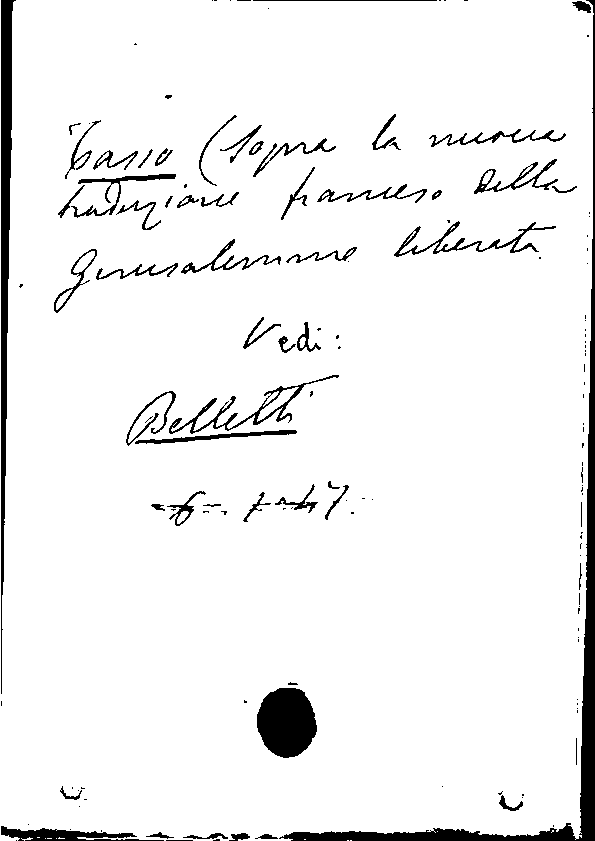 Tasso (Sopra la nuova
traduzione francese della
Gerusalemme liberata
Vedi:
Belletti